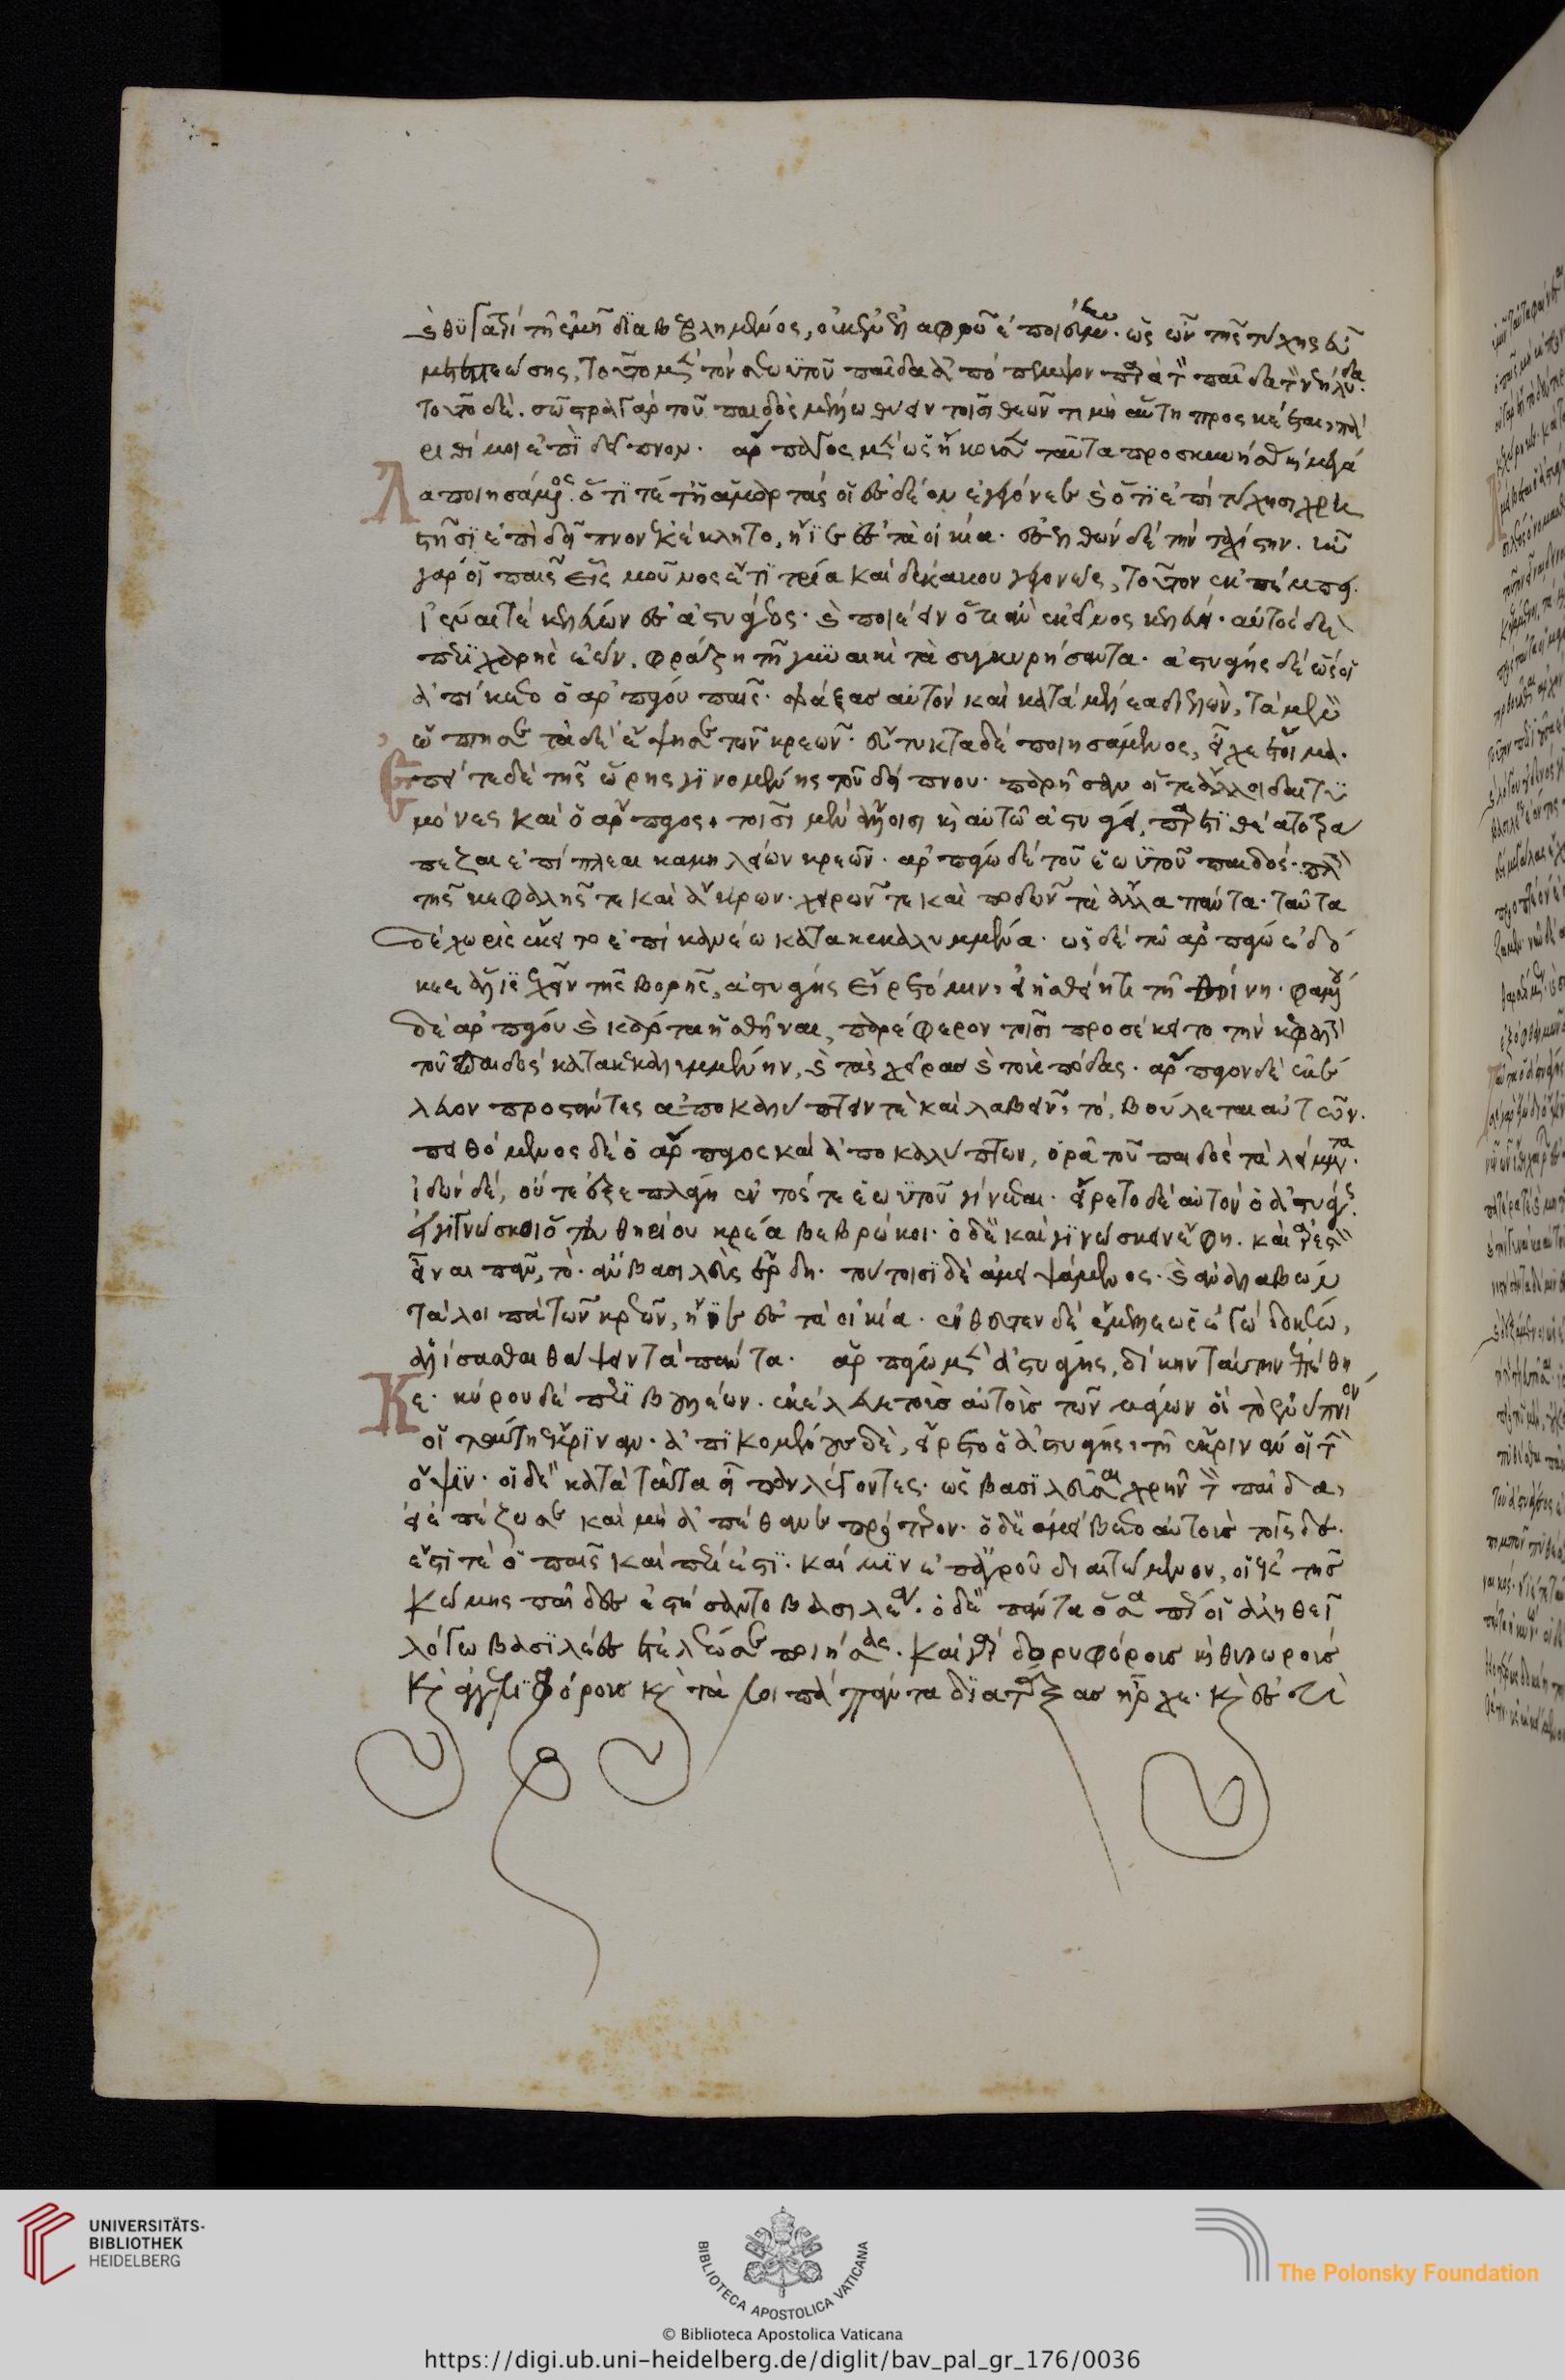 καὶ θυγατρὶ τῇ ἐμῇ διαβεβλημένος, οὐκ ἐν ἐλαφρῷ ἐποιεύμην. ὡς ὦν τῆς τύχης εὖ
μετεστεώσης, τοῦτο μὲν τὸν σεωυτοῦ παῖδα ἀπόπεμψον παρὰ τὸν παῖδα τὸν νεήλυδα.
τοῦτο δὲ. σῶστρα γὰρ τοῦ παιδὸς μέλλω θύειν τοῖσι θεῶν τιμὴ αὕτη προσκέεται, πά
ρισθί μοι ἐπὶ δεῖπνον. ἅρπαγος μὲν ὡς ἤκουσε ταῦτα προσκυνήσας καὶ μεγά
λα ποιησάμενος. ὅτι τέ τοι ἡ ἁμαρτὰς οἱ ἐς δέον ἐγεγόνει καὶ ὅτι ἐπὶ τύχῃσι χρη
στῇσι ἐπὶ δεῖπνον ἐκέκλητο, ἤϊε ἐς τὰ οἰκία. ἐσελθὼν δὲ τὴν ταχίστην. ἦν
γάρ οἱ παῖς εἷς μοῦνος ἔτη τρία καὶ δέκα κου γεγονώς, τοῦτον ἐκπέμπει.
ἰέναι τε κελεύων ἐς ἀστυάγεος. καὶ ποιέειν ὅ τι ἂν ἐκεῖνος κελεύῃ. αὐτὸς δὲ
περιχαρὴς ἐών, φράζει τῇ γυναικὶ τὰ συγκυρήσαντα. ἀστυάγης δὲ ὥς οἱ
ἀπίκετο ὁ ἁρπάγου παῖς. σφάξας αὐτὸν καὶ κατὰ μέλεα διελών, τὰ μὲν
ὤπτησε τὰ δὲ ἥψησε τῶν κρεῶν. εὔτυκτα δὲ ποιησάμενος, εἶχε ἕτοιμα.
ἐπεί τε δὲ τῆς ὥρης γινομένης τοῦ δείπνου. παρῆσαν οἵ τε ἄλλοι δαιτυ
μόνες καὶ ὁ ἅρπαγος. τοῖσι μὲν ἄλλοισι καὶ αὐτῷ ἀστυάγει, παρετιθέατο τρά
πεζαι ἐπίπλεαι καὶ μηλείων κρεῶν. ἁρπάγῳ δὲ τοῦ ἑωυτοῦ παιδός. πλὴν
τῆς κεφαλῆς τε καὶ ἄκρων. χειρῶν τε καὶ ποδῶν τὰ ἄλλα πάντα. ταῦτα
δὲ χωρὶς ἔκειτο ἐπὶ κανέῳ κατακεκαλυμμένα. ὡς δὲ τῷ ἁρπάγῳ ἐδό
κεε ἅλις ἔχειν τῆς βορῆς, ἀστυάγης εἴρετό μιν, εἰ ἡσθείη τι τῇ θοίνῃ. φαμένου
δὲ ἁρπάγου καὶ κάρτα ἡσθῆναι, παρέφερον τοῖσι προσέκειτο τὴν κεφαλὴν
τοῦ παιδὸς κατακεκαλυμμένην, καὶ τὰς χεῖρας καὶ τοὺς πόδας. ἅρπαγον δὲ ἐκέ
λευον προσστάντες ἀποκαλύπτειν τε καὶ λαβεῖν, τὸ, βούλεται αὐτέων.
πειθόμενος δὲ ὁ ἅρπαγος καὶ ἀποκαλύπτων, ὁρᾷ τοῦ παιδὸς τὰ λείμματα.
ἰδὼν δὲ, οὔτε ἐξεπλάγη ἐντός τε ἑωυτοῦ γίνεται. εἴρετο δὲ αὐτὸν ὁ ἀστυάγης.
εἰ γιγνώσκοι ὅτευ θηρίου κρέα βεβρώκοι. ὁ δὲ καὶ γινώσκειν ἔφη. καὶ ἀρεστὸν
εἶναι πᾶν, τὸ. ἂν βασιλεὺς ἔρδῃ. τούτοισι δὲ ἀμειψάμενος. καὶ ἀναλαβὼν
τὰ λοιπὰ τῶν κρεῶν, ἤϊε ἐς τὰ οἰκία. ἐνθεῦτεν δὲ ἔμελλε ὡς ἐγὼ δοκέω,
ἁλίσας θάψειν τὰ πάντα. ἁρπάγῳ μὲν ἀστυάγης, δίκην ταύτην ἐπέθη
κε. κύρου δὲ πέρι βουλεύων. ἐκάλεε τοὺς αὐτοὺς τῶν μάγων οἳ τὸ ἐνύπνιόν
οἱ ταύτῃ ἔκριναν. ἀπικομένους δὲ, εἴρετο ὁ ἀστυάγης, τῇ ἔκριναν οἱ τὴν
ὄψιν. οἱ δὲ κατὰ ταὐτὰ εἶπαν λέγοντες. ὡς βασιλεῦσαι χρῆν τὸν παῖδα,
εἰ ἐπέζωσε καὶ μὴ ἀπέθανε πρότερον. ὁ δὲ ἀμείβεται αὐτοὺς τοῖσδε.
ἔστι τε ὁ παῖς καὶ περίεστι. καί μιν ἐπ' ἀγροῦ διαιτώμενον, οἱ ἐκ τῆς
κώμης παῖδες ἐστήσαντο βασιλέα. ὁ δὲ πάντα ὅσα περ οἱ ἀληθεῖ
λόγῳ βασιλέες ἐτελέωσε ποιήσας. καὶ γὰρ δορυφόρους καὶ θυρωροὺς
καὶ ἀγγελιηφόρους καὶ τὰ λοιπὰ πάντα διατάξας ἦρχε. καὶ ἔς τι
UNIVERSITÄTS-
BIBLIOTHEK
HEIDELBERG
BIBLIOTECA APOSTOLICA VATICANA
The Polonsky Foundation
© Biblioteca Apostolica Vaticana
https://digi.ub.uni-heidelberg.de/diglit/bav_pal_gr_176/0036